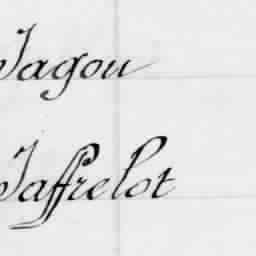 Jagou
Jaffrelot